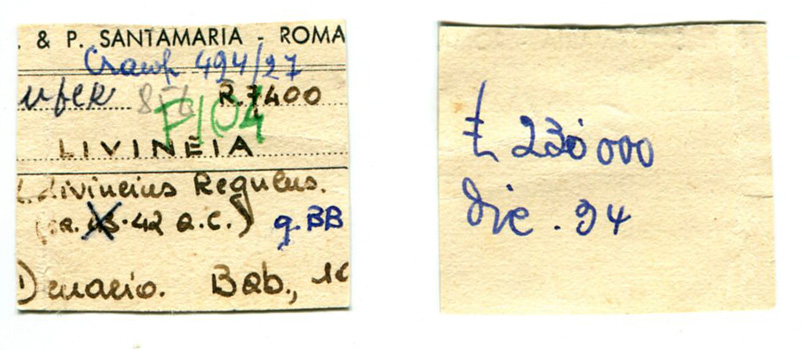 . & P. SANTAMARIA - ROMA
Crawf 494/27
R.7400
F104
LIVINEIA
L. Livineius Regulus.
(ca. 43.42 a.C.) q.BB
Denario. Bab., 10
₤ 230000
dic. 94